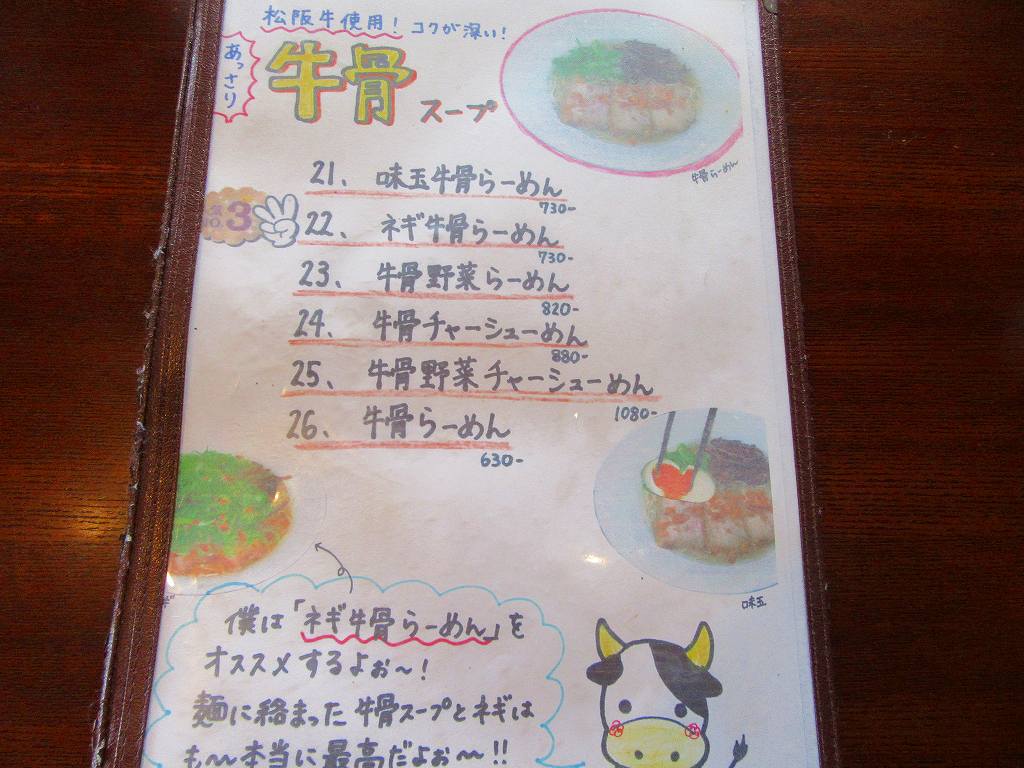 松阪牛使用! コクが深い!
あっさり
牛骨スープ
牛骨らーめん
21、味玉牛骨らーめん
730-
3
22、ネギ牛骨らーめん
730-
23、牛骨野菜らーめん
820-
24、牛骨チャーシューめん
880-
25、牛骨野菜チャーシューめん
1080-
26、牛骨らーめん
630-
味玉
僕は「ネギ牛骨らーめん」を
オススメするよぉ〜!
麺に絡まった牛骨スープとネギは
も〜〜本当に最高だよぉ〜!!